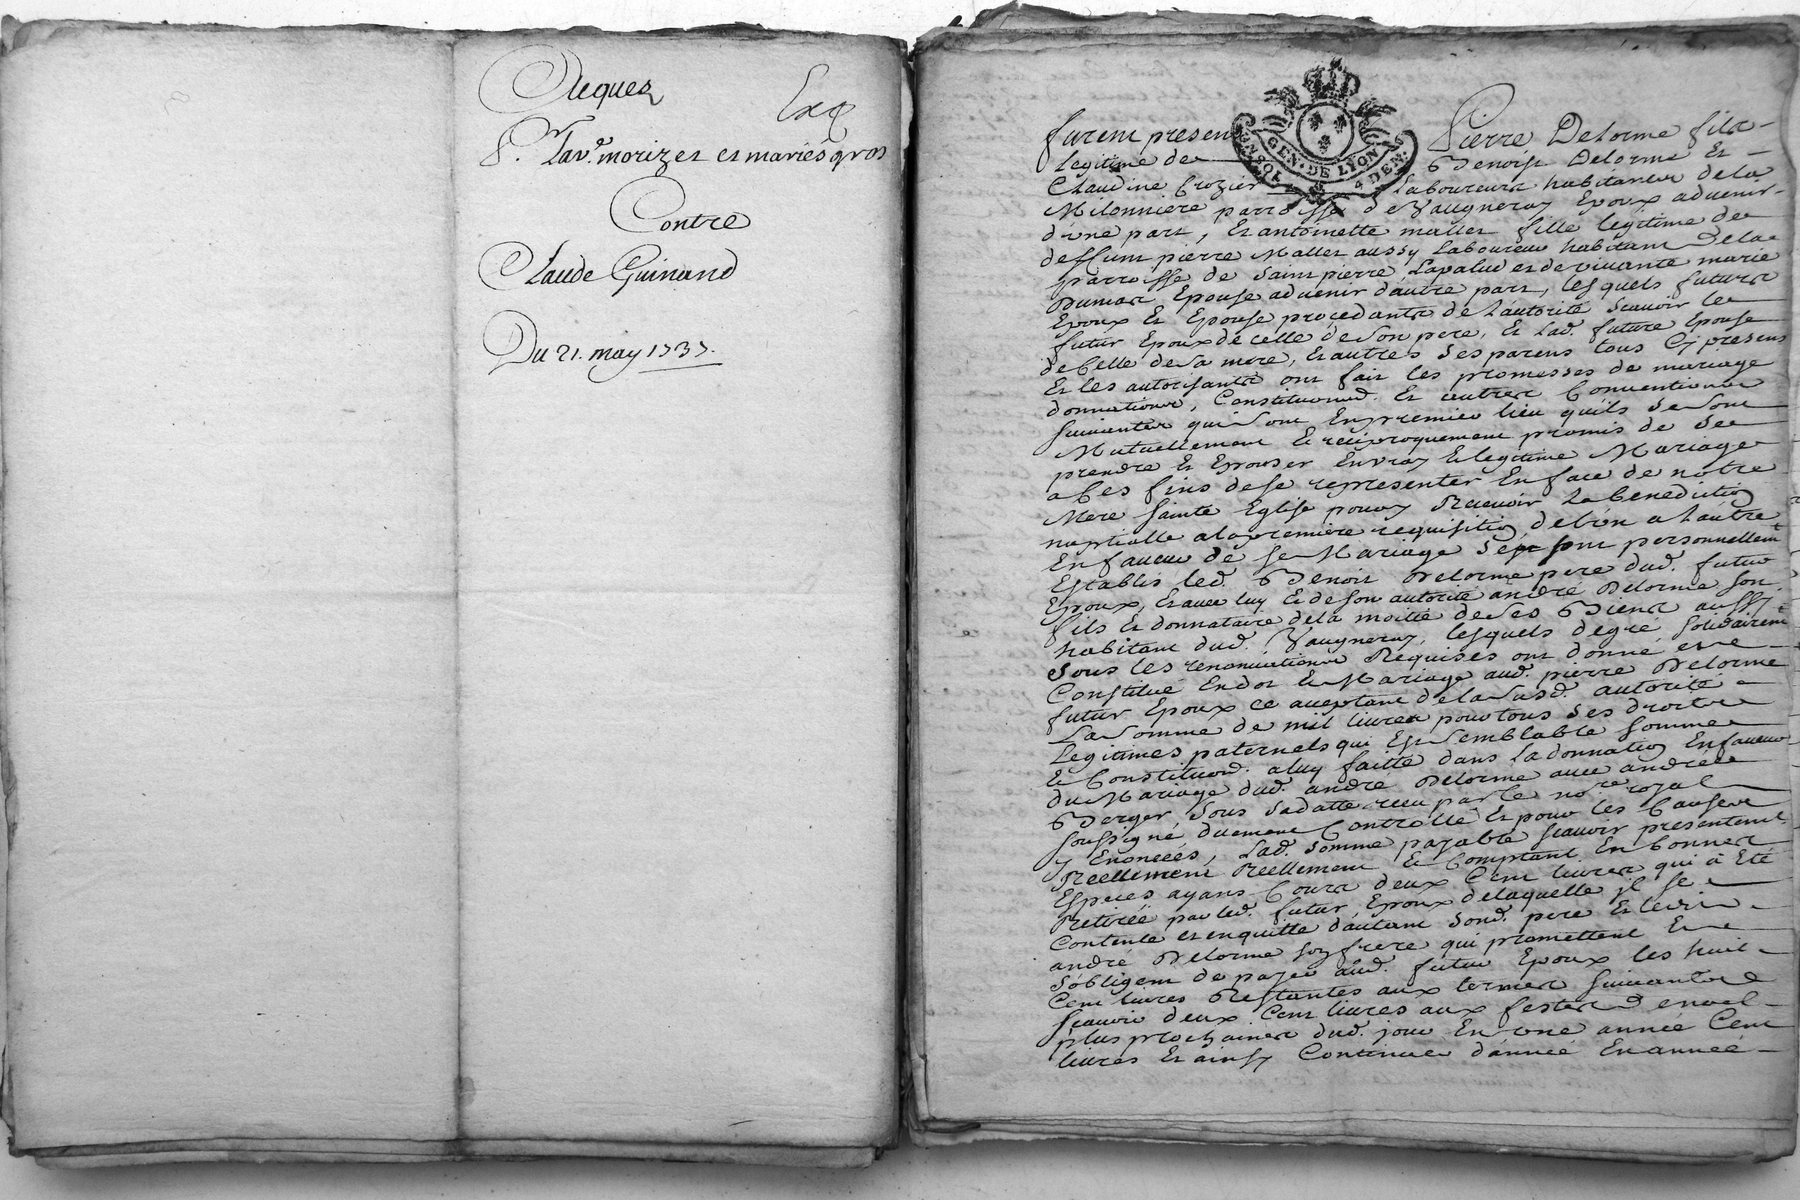 Acquez
Exp
S. Lavd. morizet et mariés gros
Contre
Claude Guinand
Du 21. may 1737.
GEN. DE LYON
4 DEN.
furent presens Pierre Delorme fils
legitime de Benoist Delorme et
Claudine Crozier laboureurs habitants de la
Milonniere parroisse de Vaugneray Epoux advenir
d'une part, Et antoinette mallet fille legitime de
deffunt pierre Mallet aussy Laboureur habitant dela
parroisse de saint pierre Lapalud et de vivante marie
Dumas Epouse advenir d'autre part, lesquels futurs
Epoux Et Epouse procedants de L'autorité scavoir le
futur Epoux de celle de son pere, Et Lad. future Epouse
de Celle de sa mere, et autres ses parens tous Cy presens
Et les autorisants ont fait les promesses de mariage
donnations, Constitutiond. Et autres Conventions
suivantes qui sont En premier lieu quils se sont
Mutuellement Et reciproquement promis de se
prendre Et Epouser En vray Et legitime Mariage
a Ces fins de se representer En face de notre
Mere sainte Eglise pour y Recevoir La benediction
nuptialle a la premiere requisition de l'un a L'autre
En faveur de ce Mariage se sont personnellemt
Establis led. Benoit Delorme pere dud. futur
Epoux, Et avec luy Et de son autorité andré Delorme son
fils Et donnataire de la moitié de ses Biens aussy
habitant dud. Vaugneray, lesquels de gré solidairemt
sous les renonciations Requises ont donné et
Constitué En dot Et Mariage aud. pierre Delorme
futur Epoux ce acceptant de la susd. autorité
La somme de mil livres pour tous ses droits
Legitimes paternels qui Est semblable somme
Et Constitutiond. a luy faitte dans La donnation En faveur
du Mariage dud. andré Delorme avec andrée
Berger, sous sa datte receu par le nore. royal
soussigné duement Controllé Et pour les Causes
y Enoncées, Lad. somme payable scavoir presentement
Reellement Et Comptant En bonnes
Especes ayans Cours deux Cent livres qui a Eté
Retirée par led. futur Epoux de laquelle il se
Contente et en quitte d'autant sond. pere Et led.
andré Delorme son frere qui promettent Et
s'obligent de payer aud. futur Epoux les huit
Cent livres Restantes aux termes suivants
scavoir deux Cent livres aux festes de noel
plus prochaines dud. jour En une année Cent
livres Et ainsy Continuer d'année En année